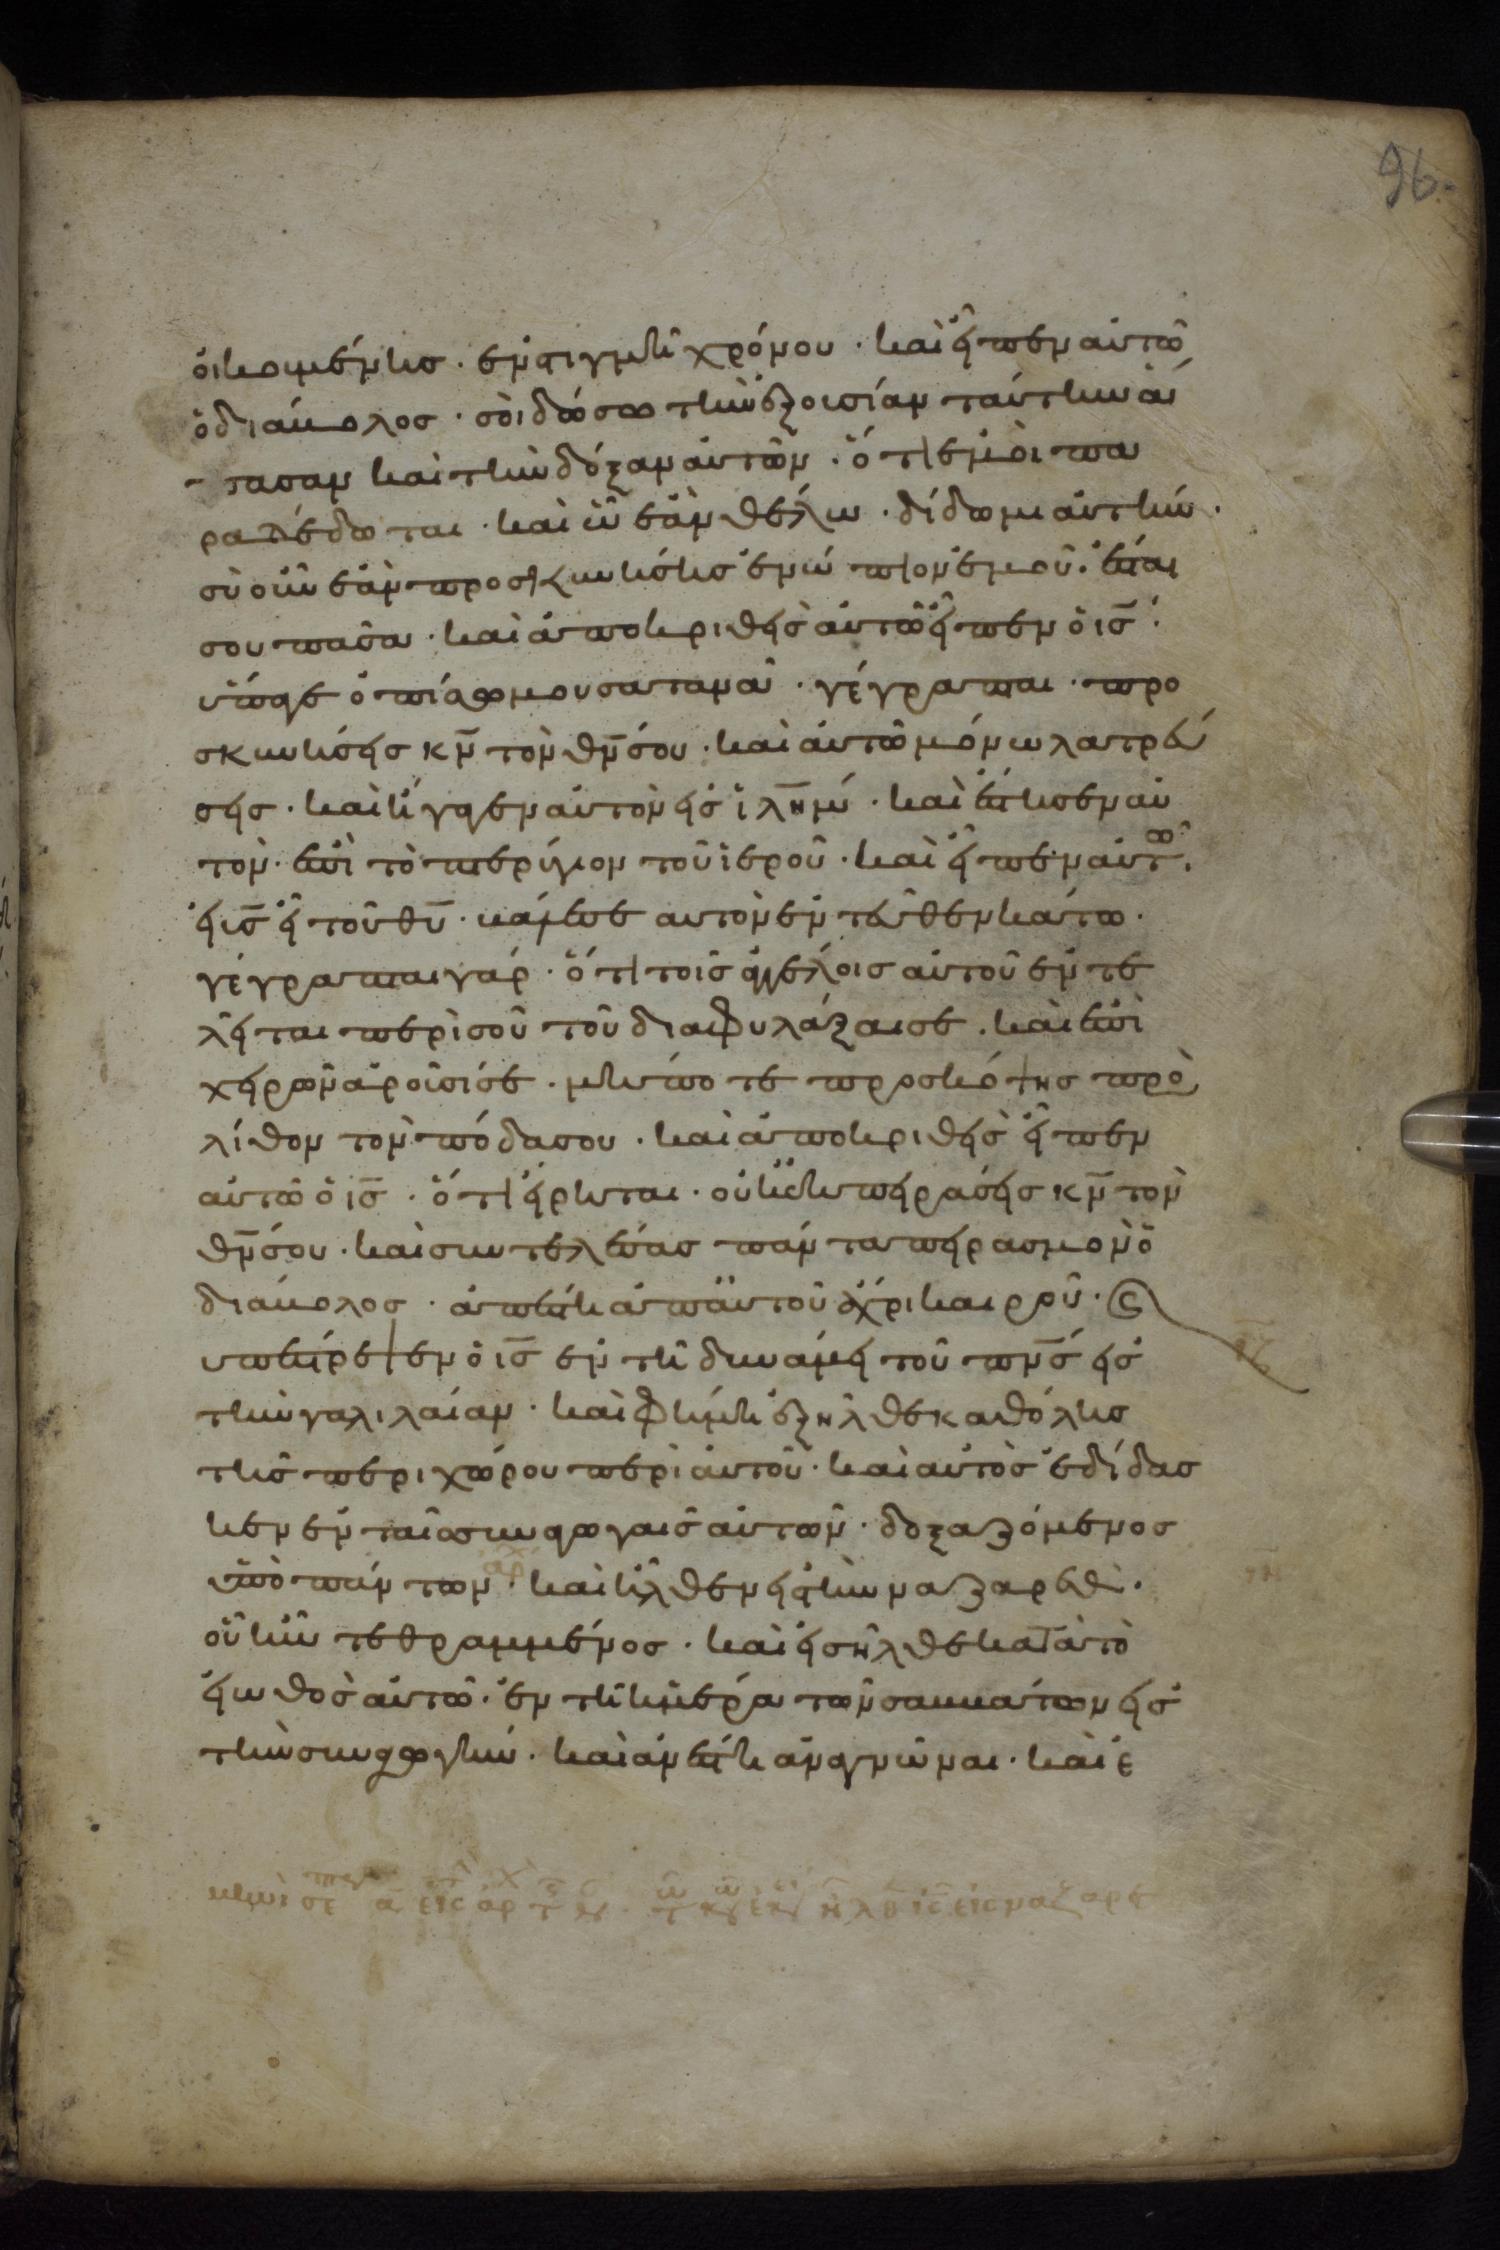 96.
οἰκουμένης · ἐν στιγμῆ χρόνου · καὶ εἶπεν αὐτῶ
ὁ διάβολος · σοὶ δώσω τὴν ἐξουσίαν ταύτην ἅ
πασαν καὶ τὴν δόξαν αὐτῶν · ὅτι ἐμοὶ πα
ραδέδοται · καὶ ὧ ἐὰν θέλω · δίδωμι αὐτήν ·
σὺ οὖν ἐὰν προσκυνήσης ἐνώπιον ἐμοῦ · ἔσται
σου πᾶσα · καὶ ἀποκριθεὶς αὐτῶ εἶπεν ὁ ις̅ ·
ὕπαγε ὀπίσω μου σατανᾶ · γέγραπται · προ
σκυνήσεις κν̅ τὸν θν̅ σου · καὶ αὐτῶ μόνω λατρεύ
σεις · καὶ ἤγαγεν αὐτὸν εἰς ἱλη̅μ · καὶ ἔστησεν αὐ
τὸν · ἐπὶ τὸ πτερύγιον τοῦ ἱεροῦ · καὶ εἶπεν αὐτῶ ·
εἰ υς̅ εἶ τοῦ θυ̅ · βάλε σεαυτὸν ἐντεῦθεν κάτω ·
γέγραπται γάρ · ὅτι τοῖς ἀγγέλοις αὐτοῦ ἐντε
λεῖται περὶ σοῦ τοῦ διαφυλάξαι σε · καὶ ἐπὶ
χειρῶν ἀροῦσί σε · μήποτε προσκόψης πρὸς
λίθον τὸν πόδα σου · καὶ ἀποκριθεὶς εἶπεν
αὐτῶ ὁ ις̅ · ὅτι εἴρηται · οὐκ ἐκπειράσεις κν̅ τὸν
θν̅ σου · καὶ συντελέσας πάντα πειρασμὸν ὁ
διάβολος · ἀπέστη ἀπ αὐτοῦ ἄχρι καιροῦ ·
ὑπέστρεψεν ὁ ις̅ ἐν τῆ δυνάμει τοῦ πνς̅ εἰς
τὴν γαλιλαίαν · καὶ φήμη ἐξῆλθε καθ ὅλης
τῆς περιχώρου περὶ αὐτοῦ · καὶ αὐτὸς ἐδίδασ
κεν ἐν ταῖς συναγωγαῖς αὐτῶν · δοξαζόμενος
ὑπὸ πάντων · καὶ ἦλθεν εἰς τὴν ναζαρέθ ·
οὗ ἦν τεθραμμένος · καὶ εἰσῆλθε κατὰ τὸ
εἰωθὸς αὐτῶ · ἐν τῆ ἡμέρα τῶν σαββάτων εἰς
τὴν συναγωγήν · καὶ ἀνέστη ἀναγνῶναι · καὶ ἐ